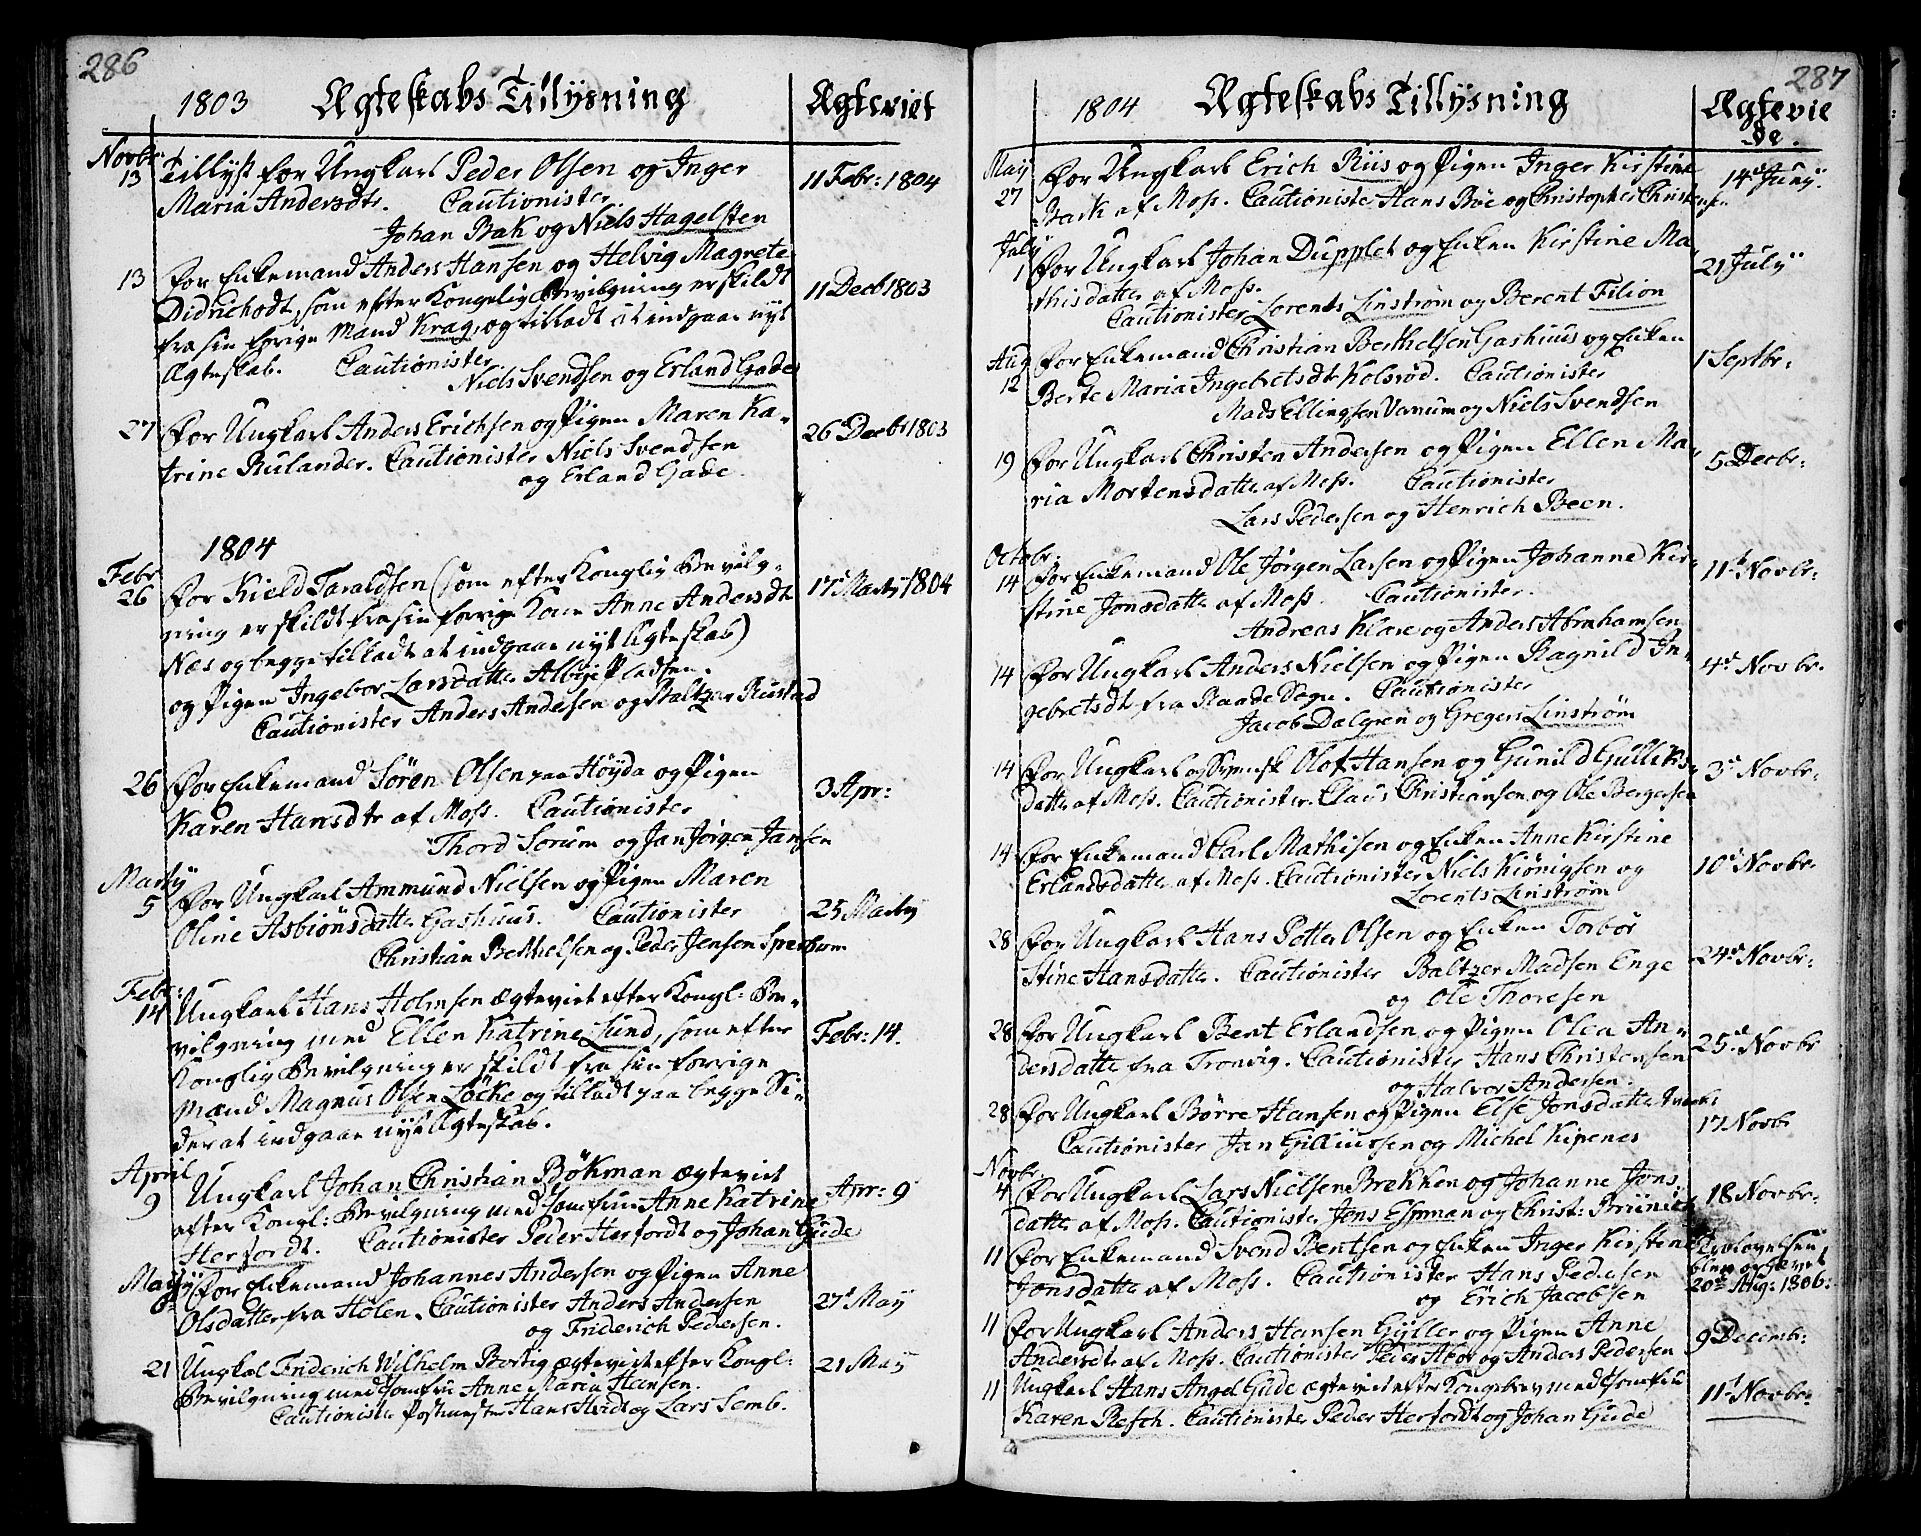 286
1803 Ægteskabs Tillysning Ægteviet
Novbr
13 Tillyst for Ungkarl Peder Olsen og Inger 11 Febr: 1804
Maria Andersdtr. Cautionister
Johan Bak og Niels Hagelsten
13 For Enkemand Anders Hansen og Helvig Magrete 11 Decb 1803
Didrichsdt, som efter Kongelig Bevilgning er skildt
fra sin forige Mand Krag, og tilladt at indgaae nyt
Ægteskab. Cautionister
Niels Svendsen og Erland Gade
27 For Ungkarl Anders Erichsen og Pigen Maren Ka- 26 Decbr 1803
trine Rulander. Cautionister Niels Svendsen
og Erland Gade.
1804
Febr
26 For Kield Taraldsen (som efter Konglig Bevilg- 17 Marty 1804
ning er skildt fra sin forrige Kone Anne Andersdt
Næs og begge tilladt at indgaae nyt Ægteskab)
og Pigen Ingebor Larsdatter Albye Pladsen.
Cautionister Anders Andersen og Baltzer Rustad
26 For Enkemand Sören Olsen paa Höyda og Pigen 3 Apr:
Karen Hansdtr af Moss. Cautionister
Thord Sorum og Jan Jörgen Jansen
Marty
5 For Ungkarl Ammund Nielsen og Pigen Maren 25 Marty
Oline Asbiönsdatter Gashuus. Cautionister
Christian Berthelsen og Peder Jensen
Febr:
14 Ungkarl Hans Holmsen ægteviet efter Kongl: Be-
vilgning med Ellen Katrine Lund, som efter Febr: 14.
Konglig Bevilgning er skildt fra sin forrige
Mand Magnus Olsen Löcke og tilladt paa begge Si-
der at indgaae nye Ægteskab.
April
9 Ungkarl Johan Christian Bökman ægteviet Apr: 9
efter Kongl: Bevilgning med Jomfrue Anne Katrine
Herfordt. Cautionister Peder Herfordt og Johan Gude
May
For Enkemand Johannes Andersen og Pigen Anne
Olsdatter fra Hölen. Cautionister Anders Andersen 27 May
og Friderich Pedersen.
21 Ungkal Friderich Wilhelm ægteviet efter Kongl: 21 May
Bevilgning med Jomfru Anne Maria Hansen.
Cautionister Postmester Hans Hvidt og Lars Semb.
287
1804 Ægteskabs Tillysning Ægtevie
de.
May
27 For Ungkarl Erich Riis og Pigen Inger Kirstine 14 Juny.
Bark af Moss. Cautionister Hans Böe og Christopher Christensen
July
1 For Ungkarl Johan Dupplet og Enken Kirstine Ma- 21 July
thisdatter af Moss.
Cautionister Lorents Linström og Berent Filion
Aug
12 For Enkemand Christian Berthelsen Gashuus og Enken 1 Septbr:
Berte Maria Ingebretsdtr Kolsröd. Cautionister
Mads Ellingsen Vanum og Niels Svendsen
19 For Ungkarl Christen Andersen og Pigen Ellen Ma- 5 Decbr:
ria Mortensdatter af Moss. Cautionister
Lars Pedersen og Henrich Been.
Octobr.
14 For Enkemand Ole Jörgen Larsen og Pigen Johanne Kir- 11t Novbr:
stine Jonsdatter af Moss. Cautionister.
Andreas Klare og Anders Abrahamsen
14 For Ungkarl Anders Nielsen og Pigen Ragnild In- 4de Novbr.
gebretsdt. fra Raade Sogn. Cautionister
Jacob Dalgren og Gregers Linström
14 For Ungkarl og Svensk Olof Hansen og Gunild Gulliks- 3d Novbr:
datter af Moss. Cautionister Claus Christiansen og Ole Bergersen
14 For Enkemand Carl Mathisen og Enken Anne Kirstine
Erlandsdatter af Moss. Cautionister Niels Kiönigsen og 10d Novbr.
Lorents Linström
28 For Ungkarl Hans Potter Olsen og Enken Torbör
Stine Hansdatter. Cautionister Baltzer Madsen Enge 24d Novbr:
og Ole Thoresen
28 For Ungkarl Bent Erlandsen og Pigen Olea An- 25d Novbr
dersdatter fra Tronvig. Cautionister Hans Christensen
og Halvor Andersen.
28 For Ungkarl Börre Hansen og Pigen Else Jonsdatter 17 Novbr
Cautionister Jan Gilliussen og Michel Kipenes
Novbr.
4 For Ungkarl Lars Nielsen Brekken og Johanne Jons- 18 Novbr:
datter af Moss. Cautionister Jens Espman og Christ: Brünich
11 For Enkemand Svend Bentsen og Enken Inger Kirstine Trolovelsen
Jonsdatter af Moss. Cautionister Hans Pedersen blev ophævet
og Erich Jacobsen 20de Aug: 1806:
11 For Ungkarl Anders Hansen Gyller og Pigen Anne 9 Decemb:
Andersdtr af Moss. Cautionister Peder Aboe og Anders Pedersen
11 Ungkarl Hans Angel Gude ægteviet efter Kongebrev med Jomfrue 11t Novbr:
Karen Resch. Cautionister Peder Herfordt og Johan Gude